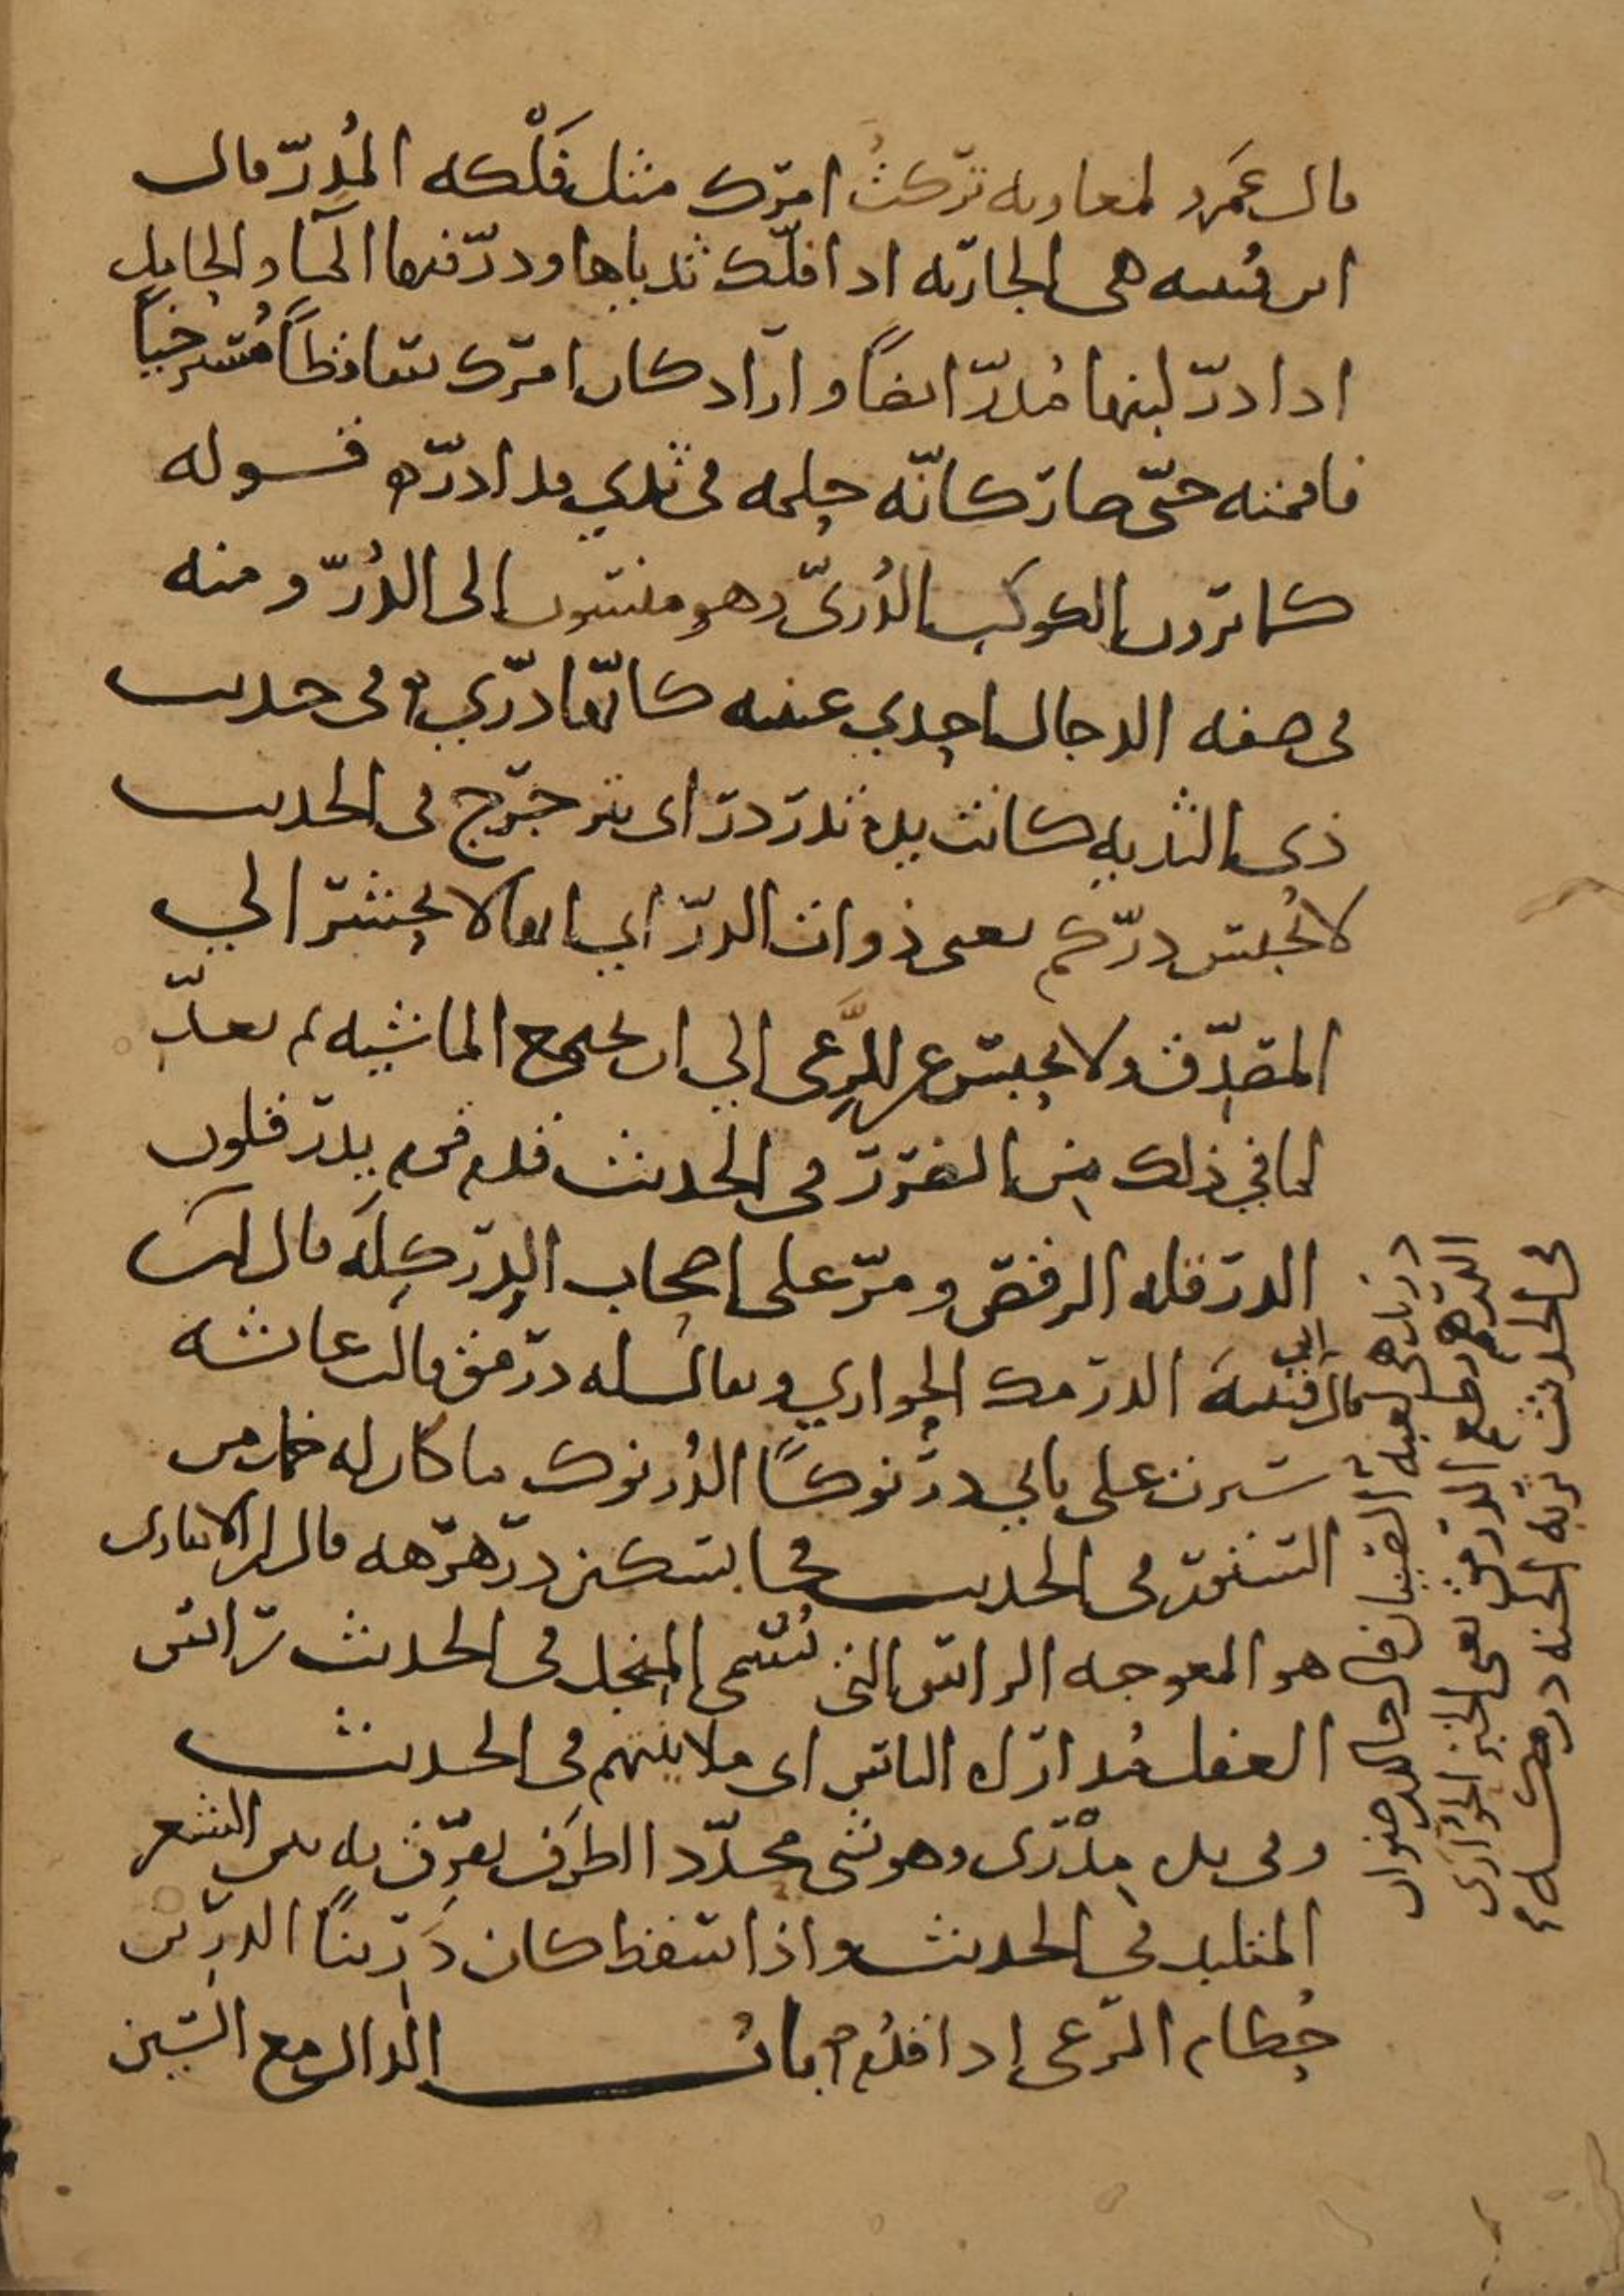 قال عمرو لمعاوية تركتُ امرك مثل فَلْكه المُدِرّ قال
ابن قتيبه هي الجاريه اذا فلّك ثدياها ودرّ فيهما الماء والحامل
اذا درّ لبنها مُدرّ ايضًا واراد كان امرك ساقطًا مُسترخيًا
فاقمته حتى صار كانّه حلمه في ثدي قد ادرّ ه قوله
كما ترون الكوكب الدُرىّ وهو منسوب الى الدُرّ ومنه
في صفه الدجال احدي عينيه كانها درّي ه وفي حديث
ذى الثديه كانت يده تدردر اى ترجرج في الحديث
لا يُحبس درّكم يعني ذوات الدرّ اي انها لا تحشر الي
المصدّق ولا تحبس عن المَرعى الي ان تجتمع الماشيه ثم تعدّ
لما في ذلك من الضرر في الحديث فلم قم يدرقلون
الدرقله الرقص ومرّ على اصحاب الدِرَكِلَه قال
قال ابن قتيبة الدرمك الحواري ويقال له درمق قالت عائشه
سترت على بابي درنوكًا الدُرنوك ما كان له خمل من
الستور في الحديث فجا بسكين درهرهه قال ابن الانبارى
هو المعوجه الراس التى تُسمى المنجل في الحديث راس
العقل مُداراه الناس اى ملاينتهم في الحديث
وفي يده مِدْرَى وهو شى محدّد الطرف يفرّق به بين الشعر
المتلبد في الحديث واذا سقط كان دَرِينًا الدرين
حُطام المرعى اذا قدُم ه باب الدال مع السين
في الحديث تربه الجنه درمكه